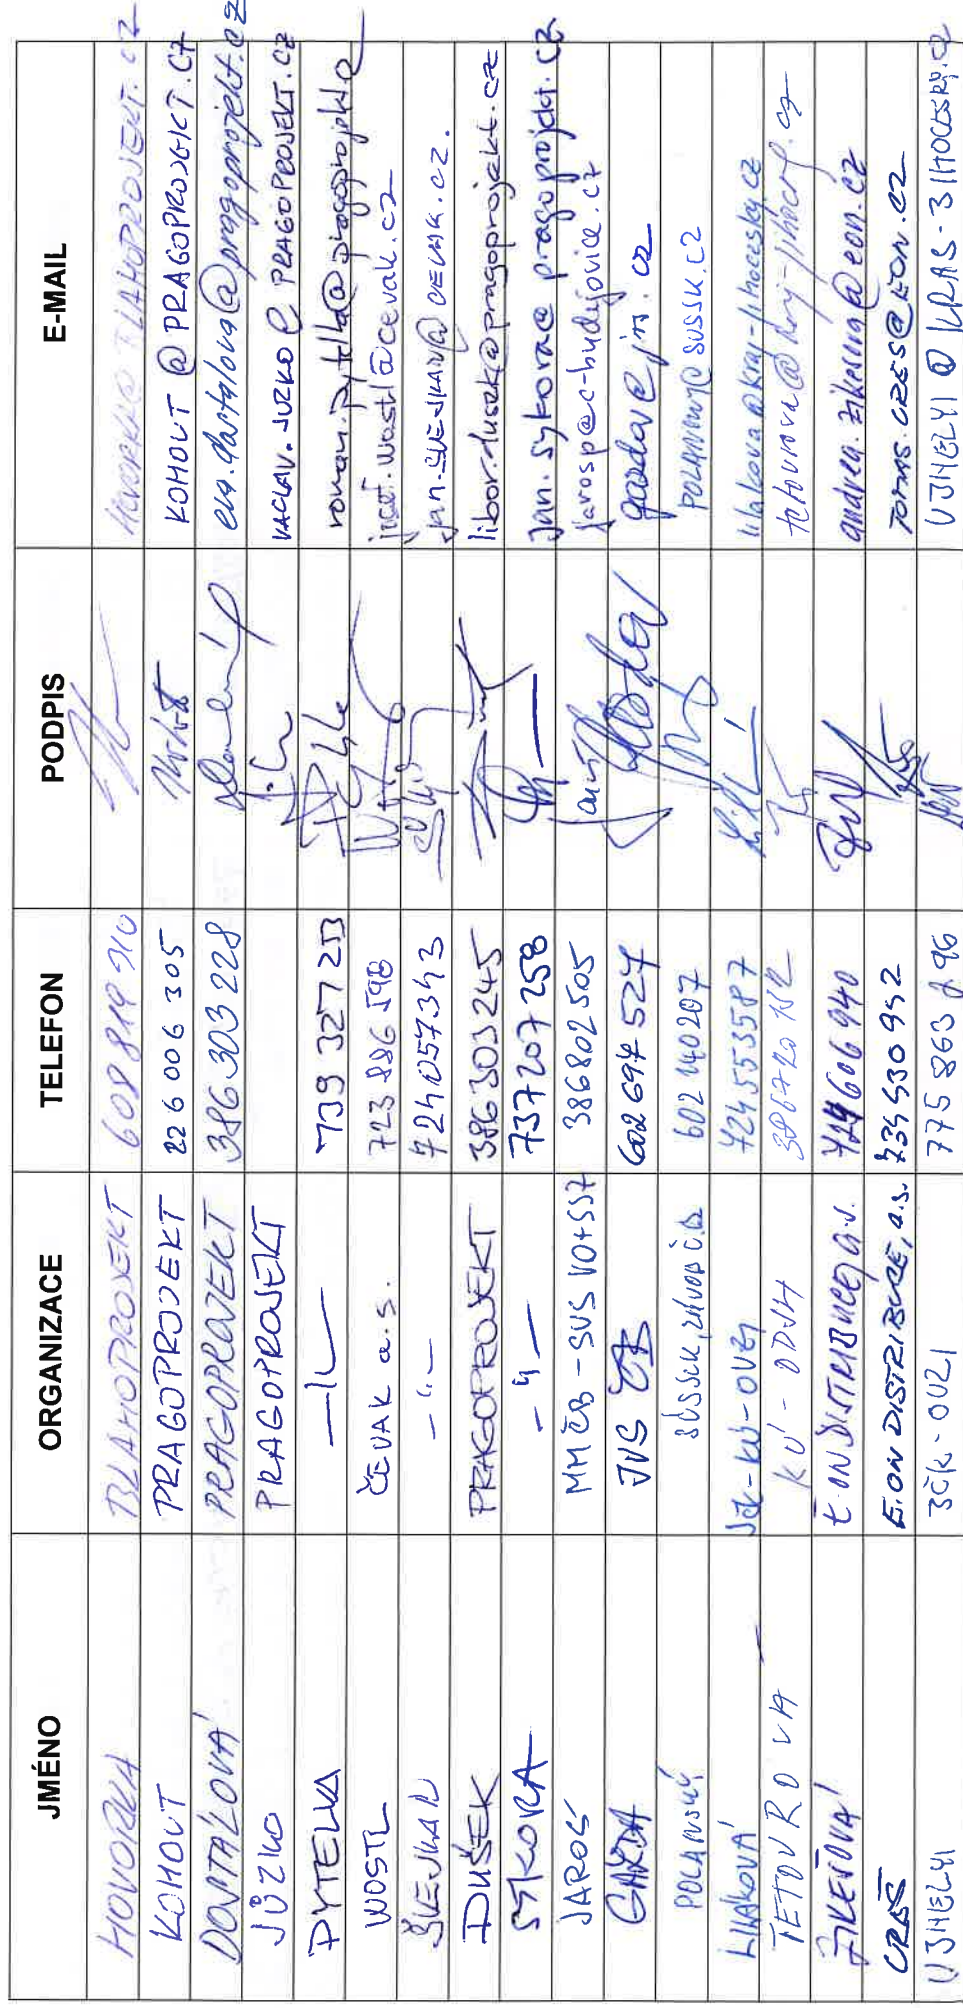 JMÉNO ORGANIZACE TELEFON PODPIS E-MAIL
HOVORKA BLAHOPROJEKT 608 819 910 HOVORKA@BLAHOPROJEKT.CZ
KOHOUT PRAGOPROJEKT 226 006 305 KOHOUT@PRAGOPROJEKT.CZ
DOSTÁLOVÁ PRAGOPROJEKT 386 303 228 eva.dostalova@pragoprojekt.cz
JŮZKO PRAGOPROJEKT VACLAV.JUZKO@PRAGOPROJEKT.CZ
PYTELKA —||— 739 327 213 roman.pytelka@pragoprojekt.cz
WOSTL ČEVAK a.s. 723 886 598 wostl@cevak.cz
ŠLEJMAR —"— 724057343
DUŠEK PRAGOPROJEKT 386303245 libor.dusek@pragoprojekt.cz
SÝKORA —"— 737 207 258 jan.sykora@pragoprojekt.cz
JAROŠ MM ČB - SVS VO+SSZ 386802505 jarosp@c-budejovice.cz
GAŽDA JVS ČB 602 694 527 gazda@jvs.cz
POLANSKÝ SÚSJčK, závod Č.B. 602 140207 POLANSKY@SUSJK.CZ
LILÁKOVÁ JčK-KÚ-OÚZŘ 724553587 lilakova@kraj-jihocesky.cz
TETOUROVÁ KÚ - ODSH 386720
ZIKEŠOVÁ E.ON DISTRIBUCE, a.s. 724606940 andrea.zikesova@eon.cz
CRES E.ON DISTRIBUCE, a.s. 734 530 952 TOMAS.CRES@EON.CZ
ÚJHELYI JČK - OÚZI 775 863 296 UJHELYI@KRAJ-JIHOCESKY.CZ